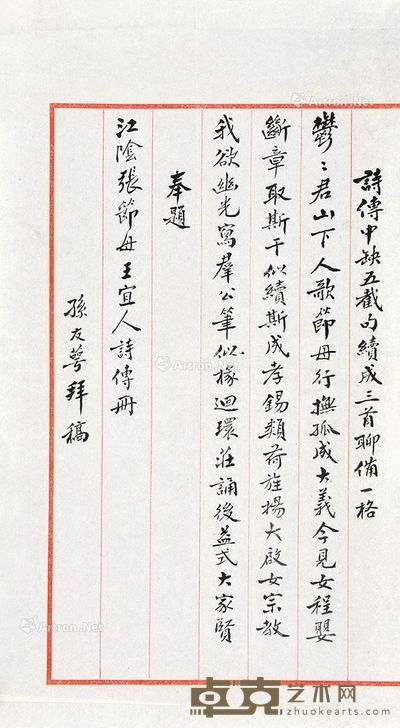 詩傳中缺五截句續成三首聊備一格
鬱〻君山下人歌節母行撫孤成大義今見女程嬰
斷章取斯干似續斯成孝錫類荷旌揚大啟女宗教
我欲幽光寫羣公筆似椽迴環莊誦後益式大家賢
奉題
江陰張節母王宜人詩傳冊
孫友萼拜稿
Artron.Net
Artron.Net
Artron.Net
Artron.Net
卓克艺术网
www.zhuokearts.com